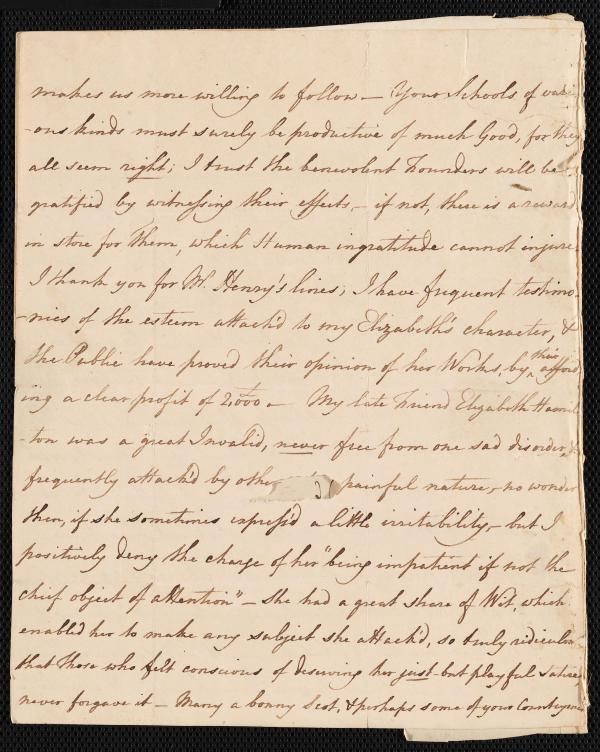 makes us more willing to follow — Your Schools of vari
-ous kinds must surely be productive of much Good, for they
all seem right; I trust the benevolent Founders will be
gratified by witnessing their effects, — if not, there is a reward
in store for them, which Human ingratitude cannot injure
I thank you for Mr. Henry's lines; I have frequent testimo-
-nies of the esteem attach'd to my Elizabeth's character, &
the Public have proved their opinion of her Works, by their afford
ing a clear profit of £2,000 — My late Friend Elizabeth Hamil
-ton was a great Invalid, never free from one sad disorder, &
frequently attack'd by other painful nature, — no wonder
then, if she sometimes express'd a little irritability, — but I
positively deny the charge of her "being impatient if not the
chief object of attention" — she had a great share of Wit, which
enabled her to make any subject she attack'd, so truly ridiculous
that those who felt conscious of deserving her just but playful satire
never forgave it — Many a bonny Scot, & perhaps some of your Countrymen